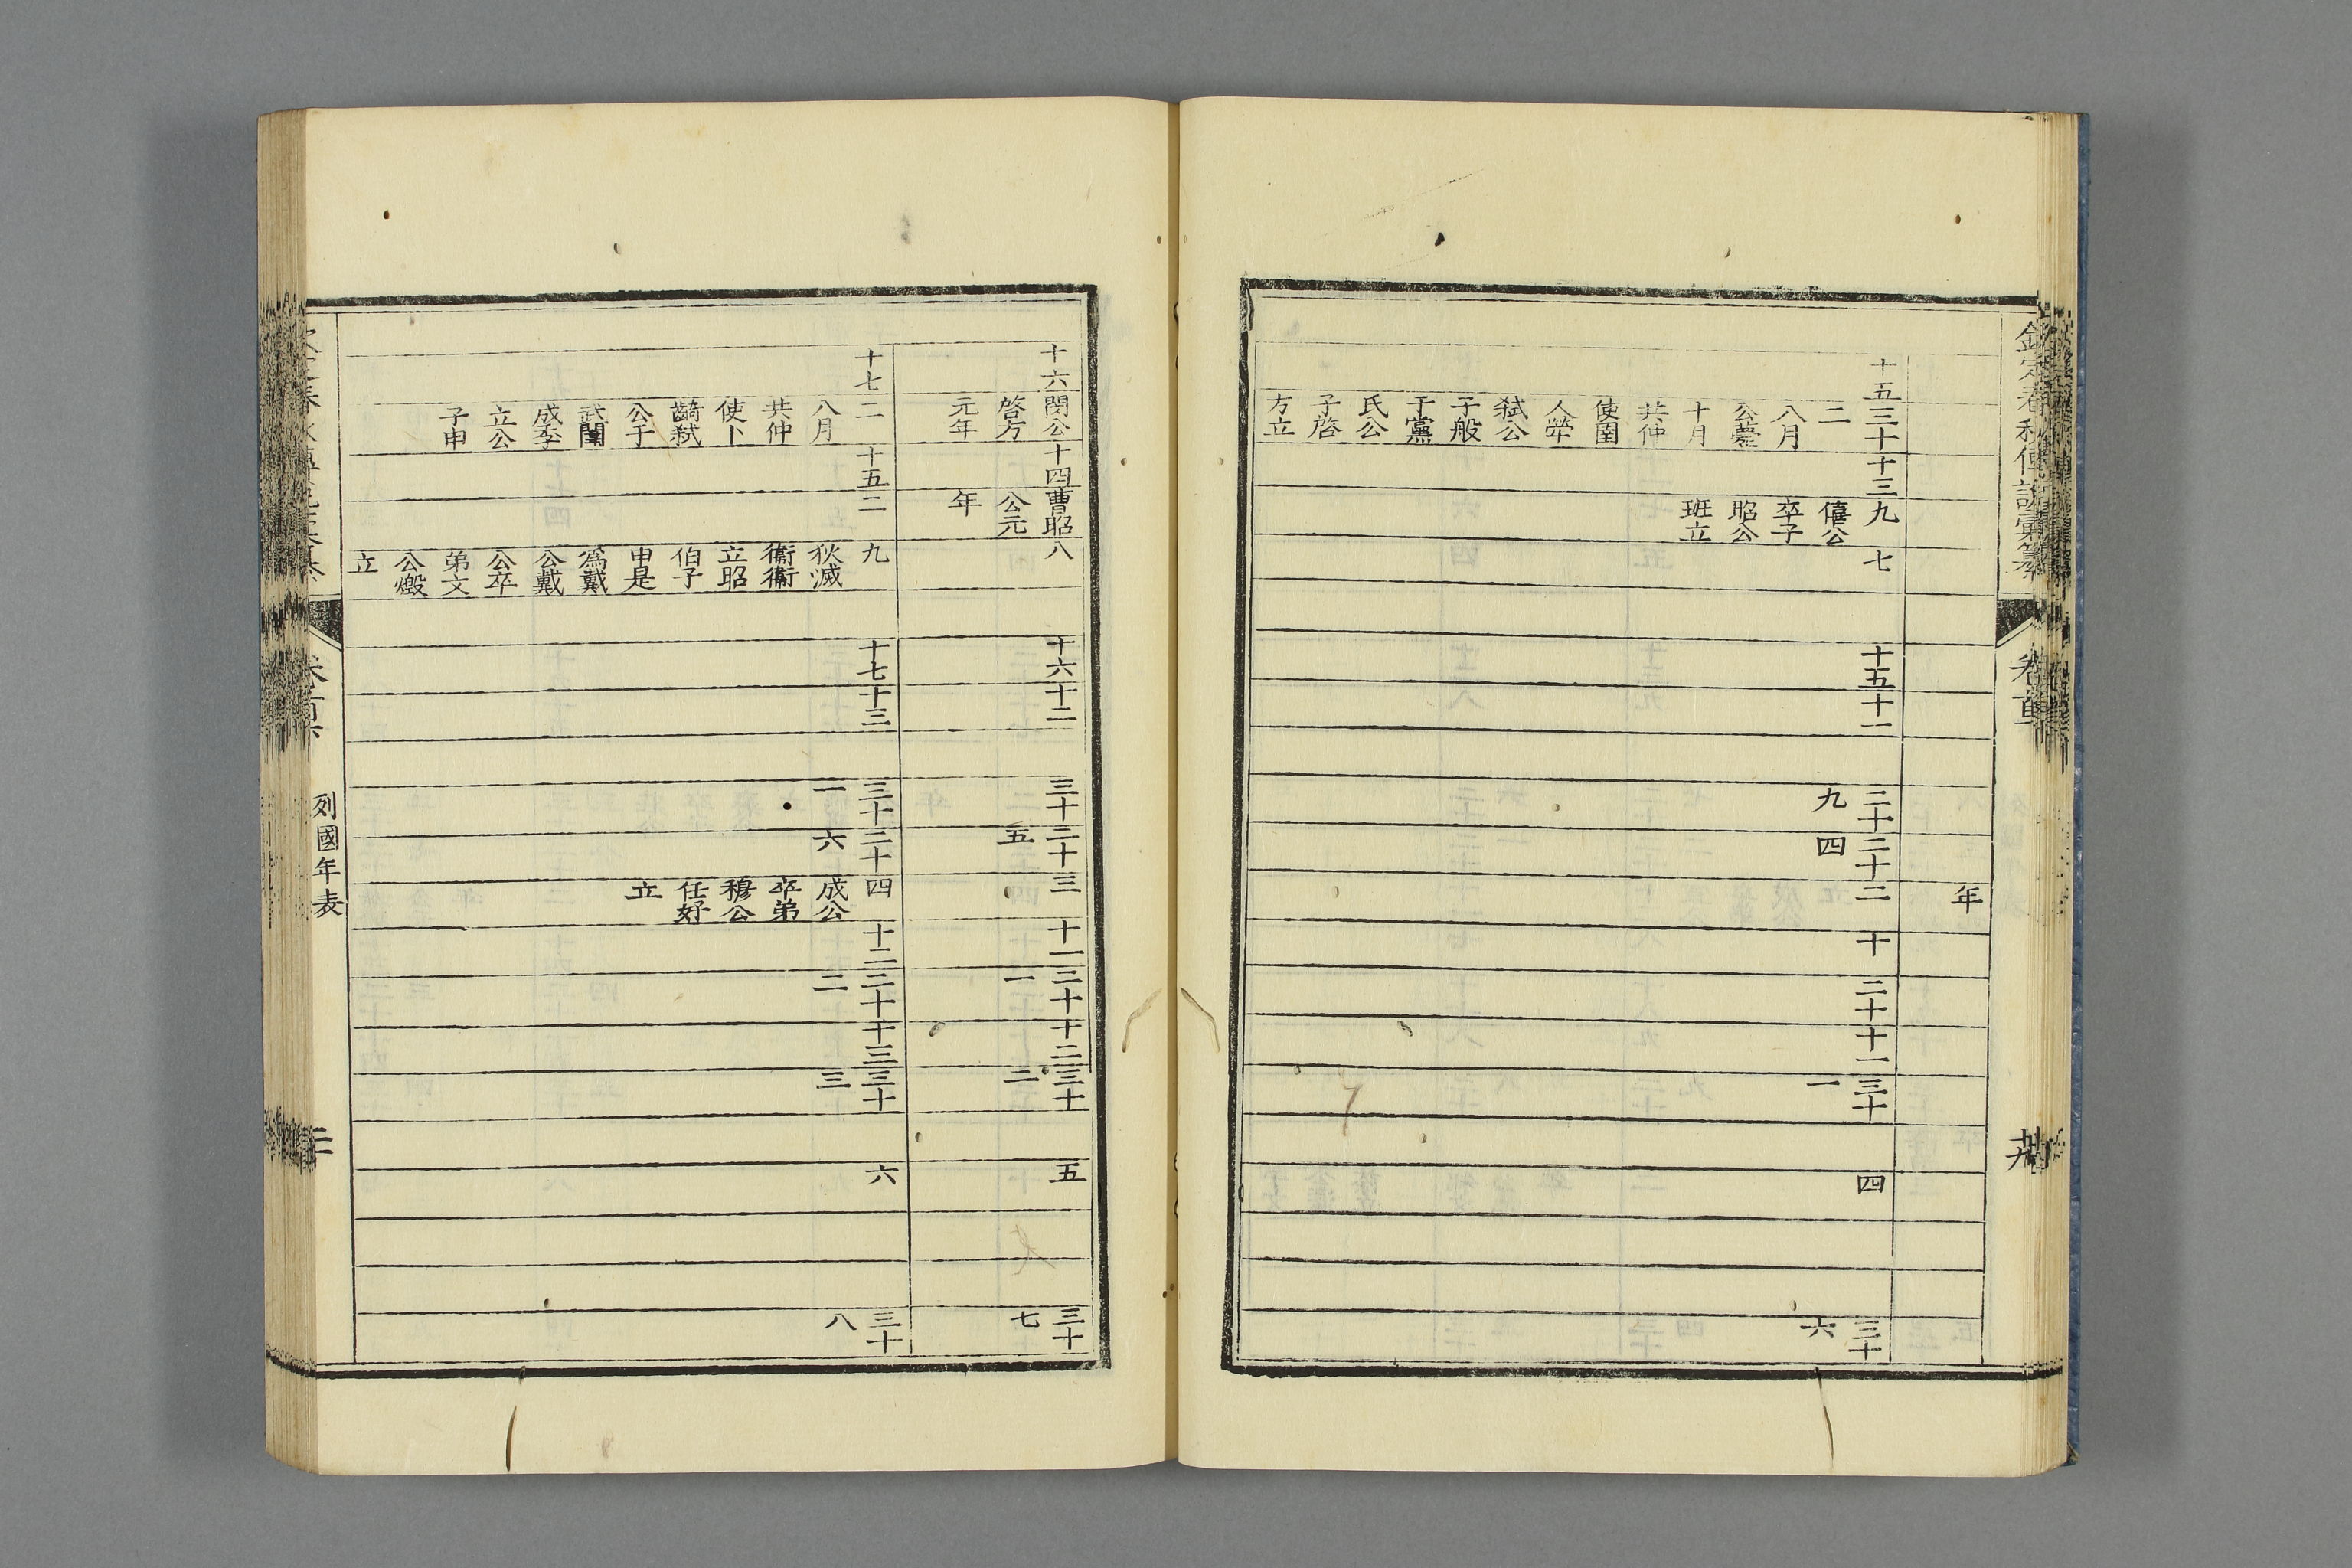 欽定春秋傳說彙纂
卷首
年
十五
三十二
八月公薨十月共仲使圉人犖弒公子般于黨氏公子啓方立
十三
九
僖公卒子昭公班立
七
十五
十一
二十九
二十四
二
十
二十
十一
三十一
四
三十六
十六
閔公啓方元年
十四
曹昭公元年
八
十六
十二
三十
二十五
三
十一
二十一
十二
三十二
五
三十七
十七
二
八月共仲使卜齮弒公于武闈成季立公子申
十五
二
九
狄滅衞衞立昭伯子申是爲戴公戴公卒弟文公燬立
十七
十三
三十一
二十六
四
成公卒弟穆公任好立
十二
二十二
十三
三十三
六
三十八
列國年表